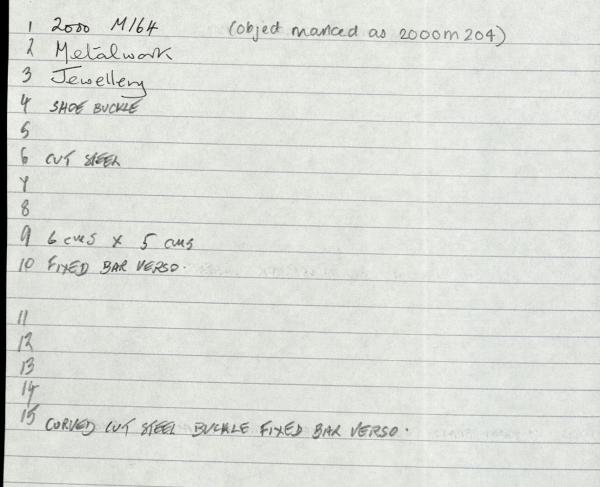 1 2000 M164 (object marked as 2000m 204)
2 Metalwork
3 Jewellery
4 SHOE BUCKLE
5
6 CUT STEEL
7
8
9 6 cms x 5 cms
10 FIXED BAR VERSO.
11
12
13
14
15 CURVED CUT STEEL BUCKLE FIXED BAR VERSO.